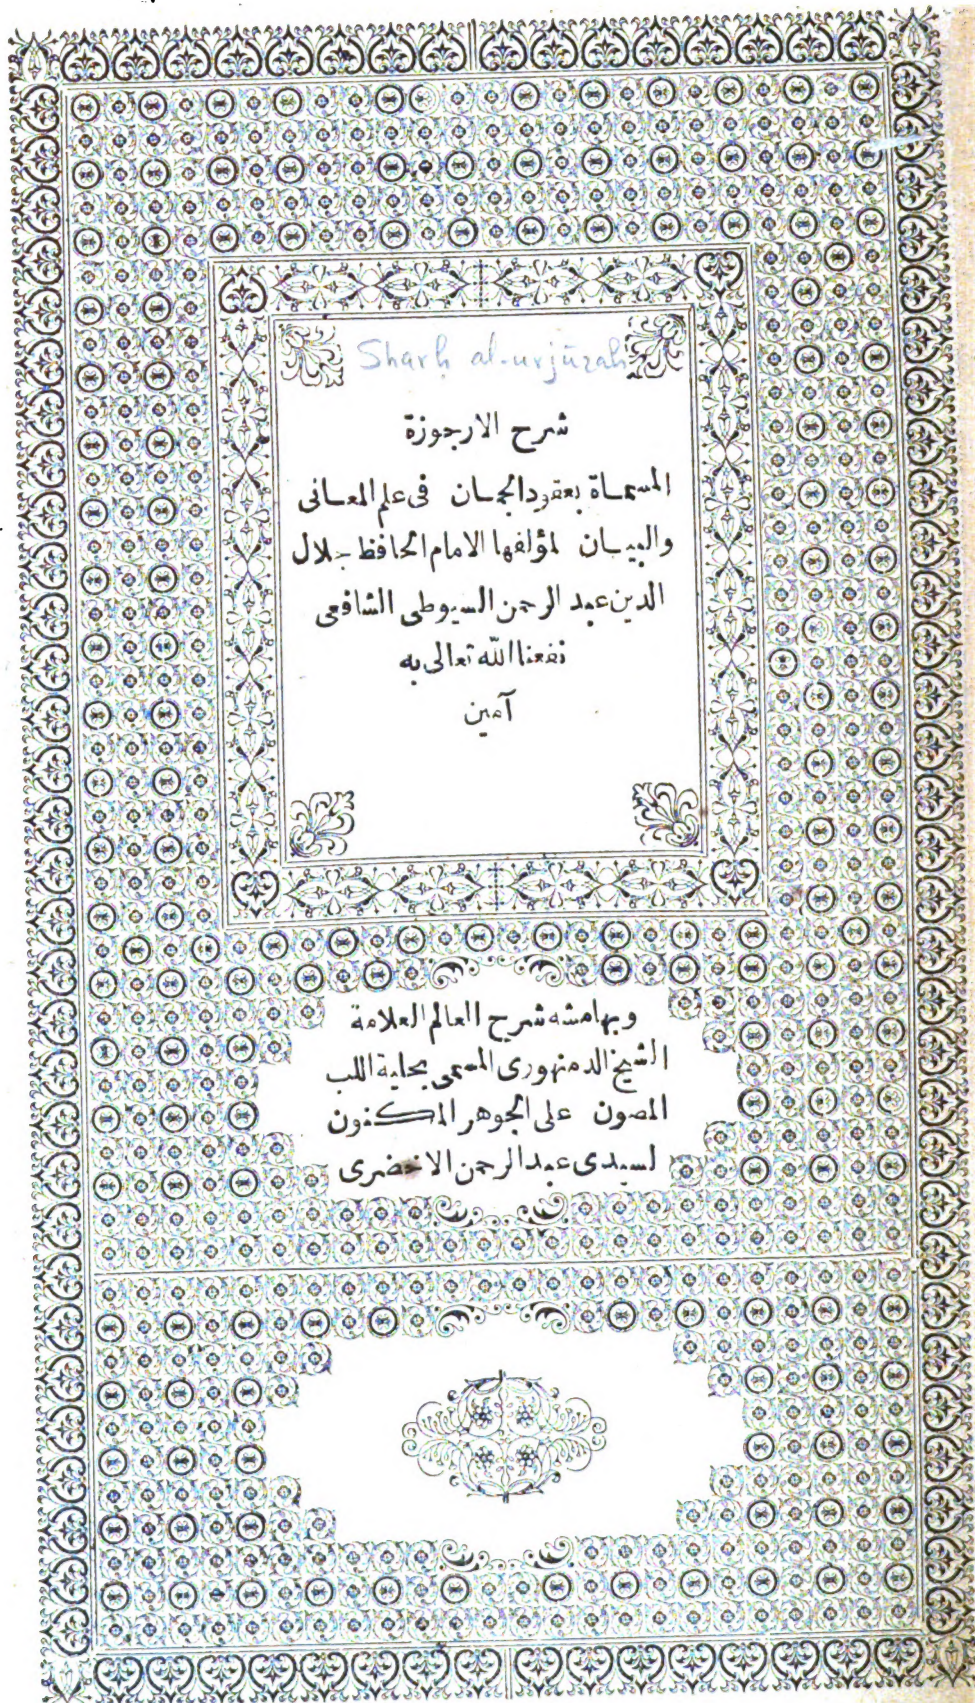 Sharḥ al-urjūzah
شرح الارجوزة
المسماة بعقود الجمان فى علم المعانى
والبيان لمؤلفها الامام الحافظ جلال
الدين عبد الرحمن السيوطى الشافعى
نفعنا الله تعالى به
آمين
وبهامشه شرح العالم العلامة
الشيخ الدمنهورى المسمى بحلية اللب
المصون على الجوهر المكنون
لسيدى عبد الرحمن الاخضرى